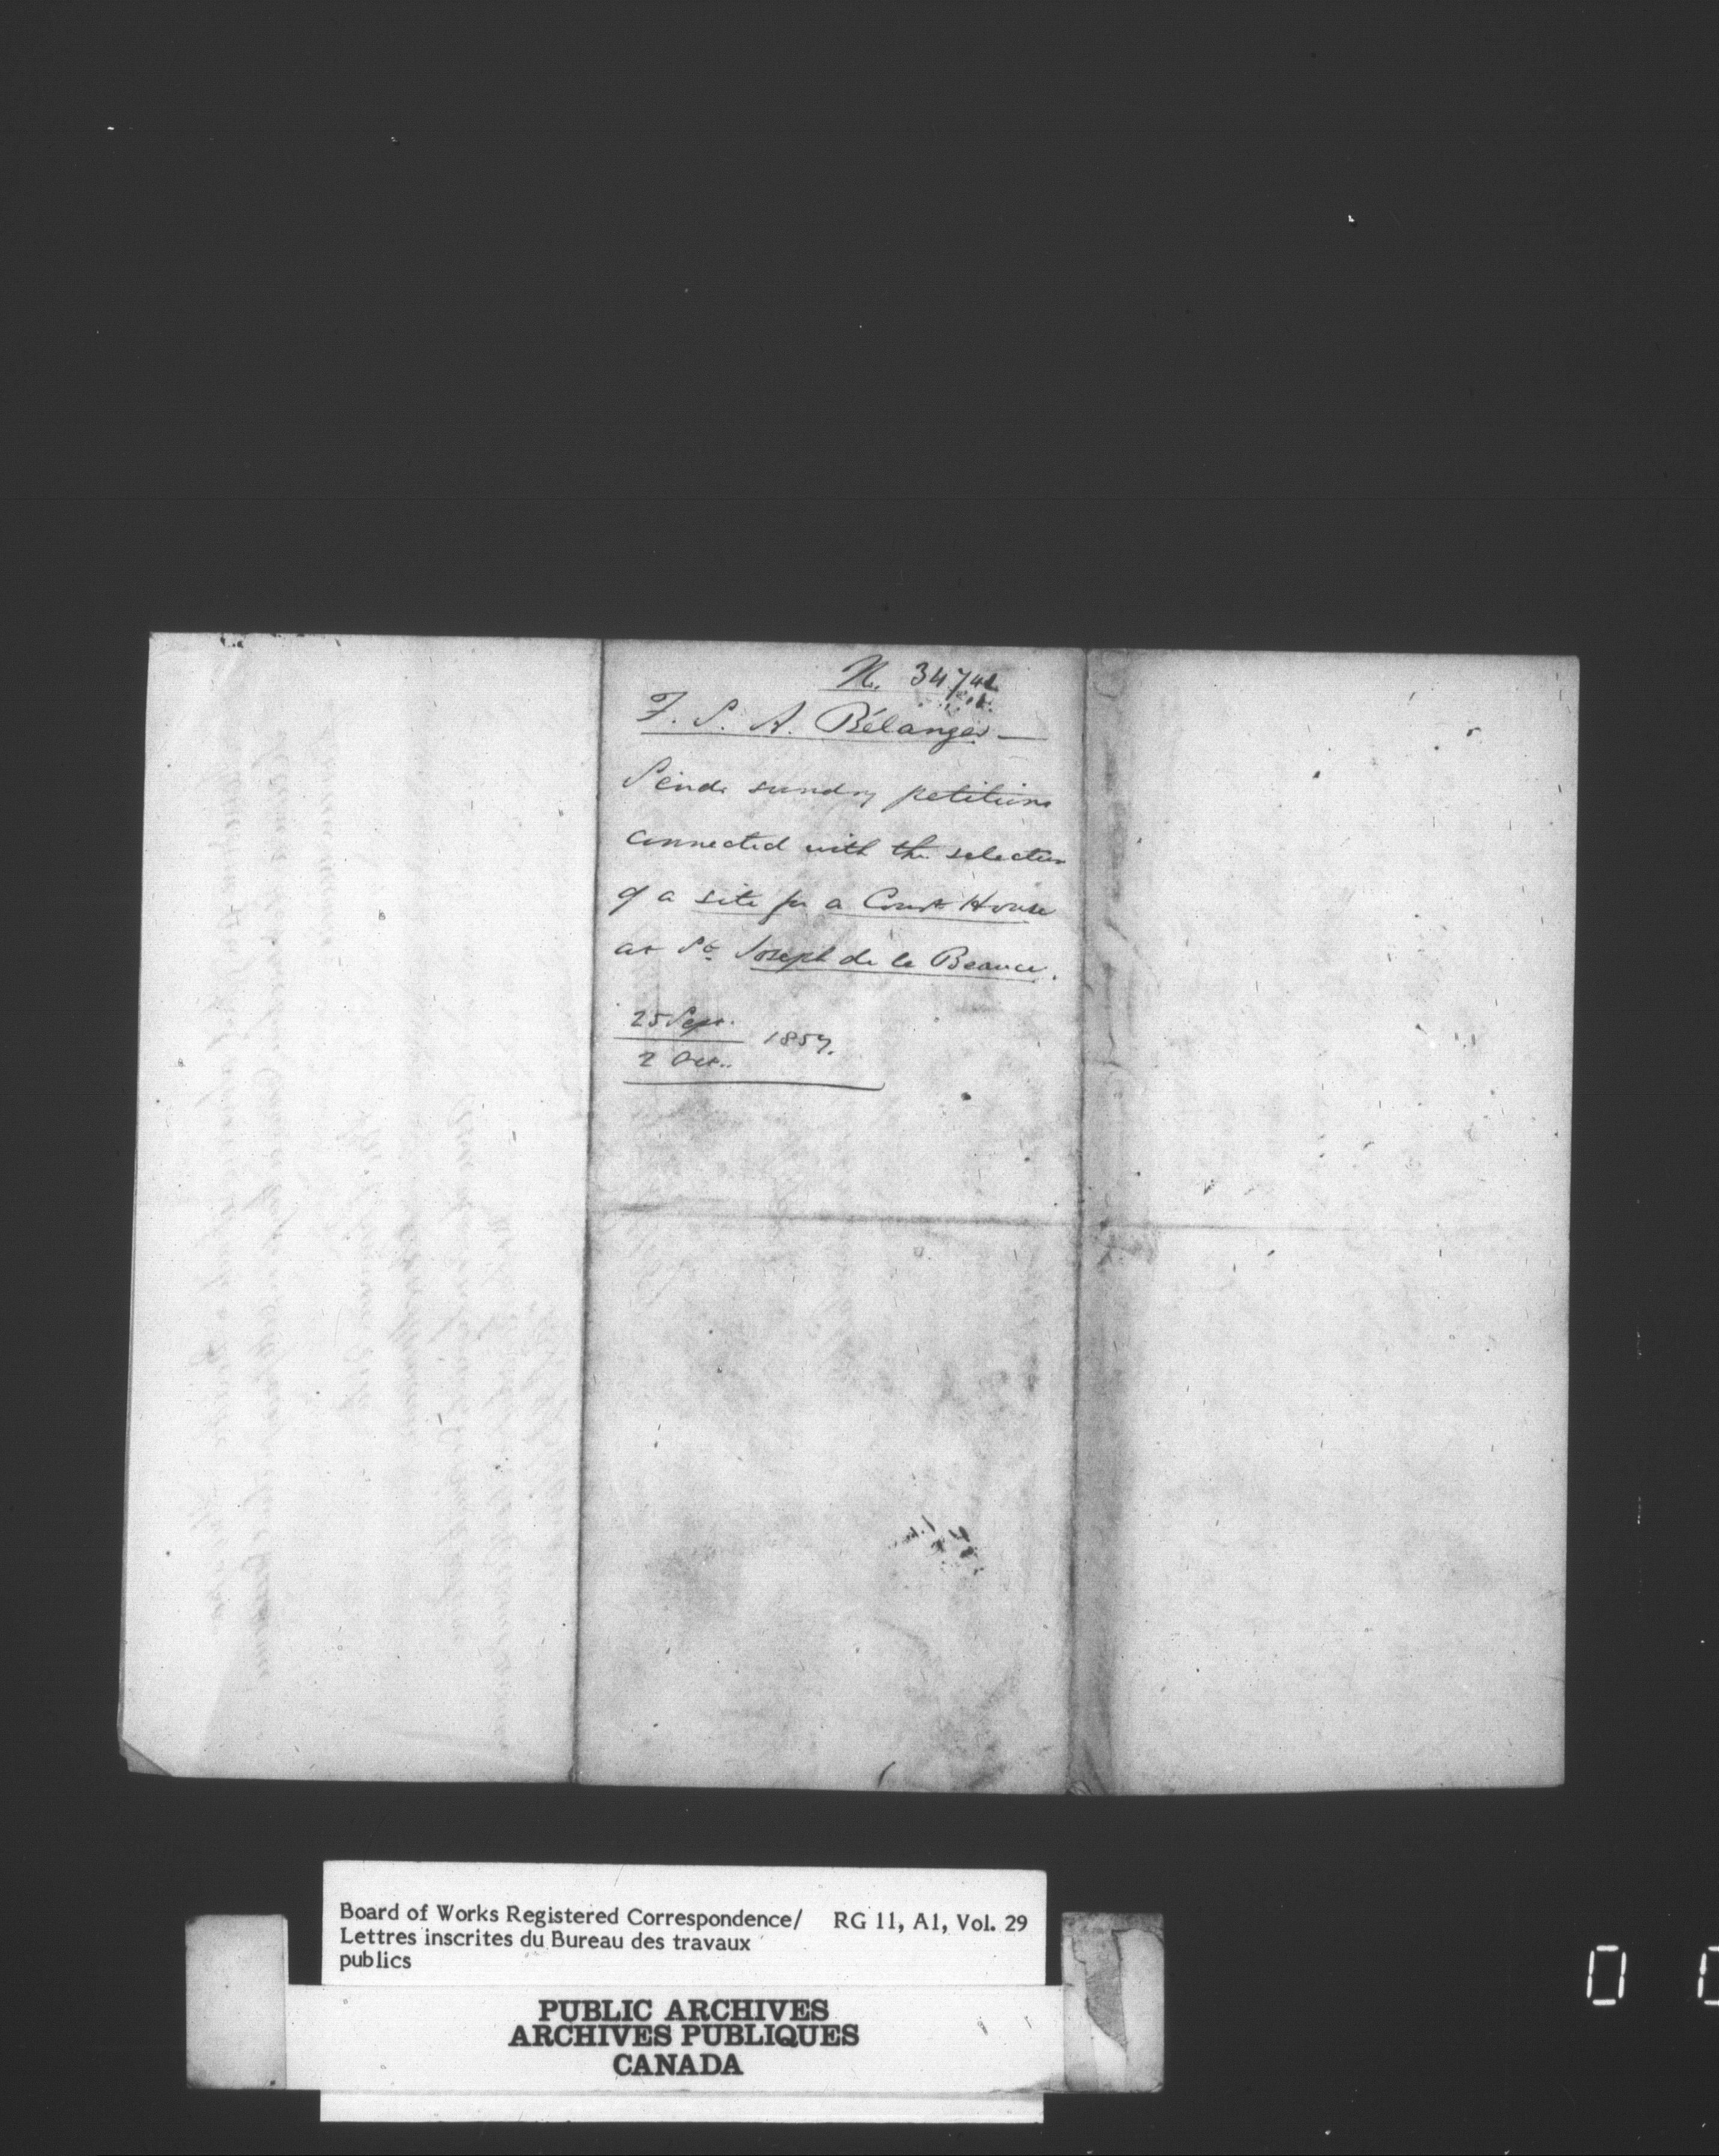 N. 34742
F. S. A. Bélanger —
Sends sundry petitions
connected with the selection
of a site for a Court House
at St. Joseph de la Beauce.
25 Sept.
2 Oct. 1857.
Board of Works Registered Correspondence/ RG 11, A1, Vol. 29
Lettres inscrites du Bureau des travaux
publics
PUBLIC ARCHIVES
ARCHIVES PUBLIQUES
CANADA
0